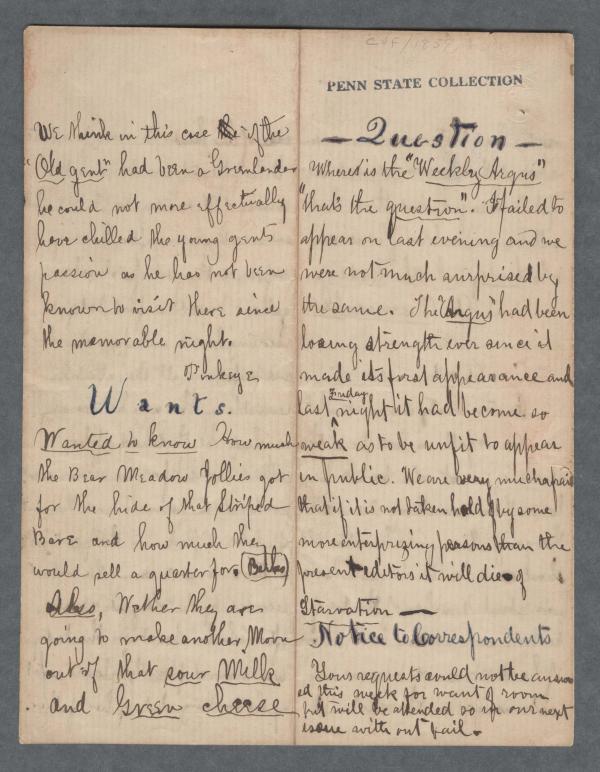 We think in this case if the
"Old gent" had been a Greenlander
he could not more effectually
have chilled the young gents
passion as he has not been
known to visit there since
the memorable night.
Pinkeye
Wants.
Wanted to know How much
the Bear Meadow Jollies got
for the hide of that Striped
Bare and how much they
would sell a quarter for.
Also, Wether they are
going to make another Moon
out of that sour Milk
and Green cheese
PENN STATE COLLECTION
— Question —
Where is the "Weekly Argus"
"that's the question". It failed to
appear on last evening and we
were not much surprised by
the same. The "Argus" had been
losing strength ever since it
made its first appearance and
last Friday night it had become so
weak as to be unfit to appear
in public. We are very much afraid
that if it is not taken hold of by some
more enterprizing persons than the
present editors it will die of
Starvation —
Notice to Correspondents
Your requests could not be answer
ed this week for want of room
but will be attended so in our next
issue with out fail.